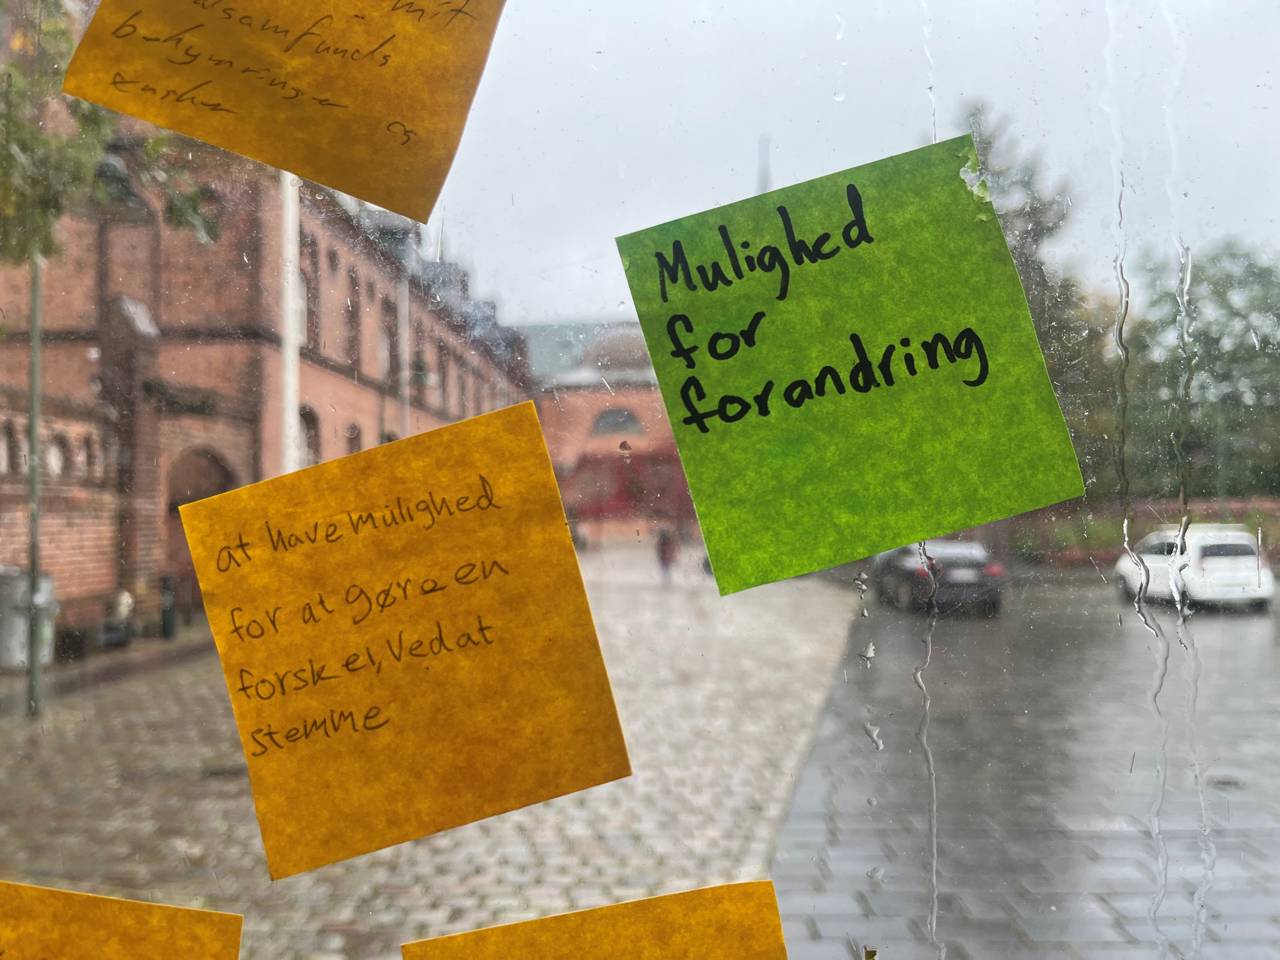 mit
samfunds
bekymringer
ønsker og
Mulighed
for
forandring
at have mulighed
for at gøre en
forskel, ved at
stemme